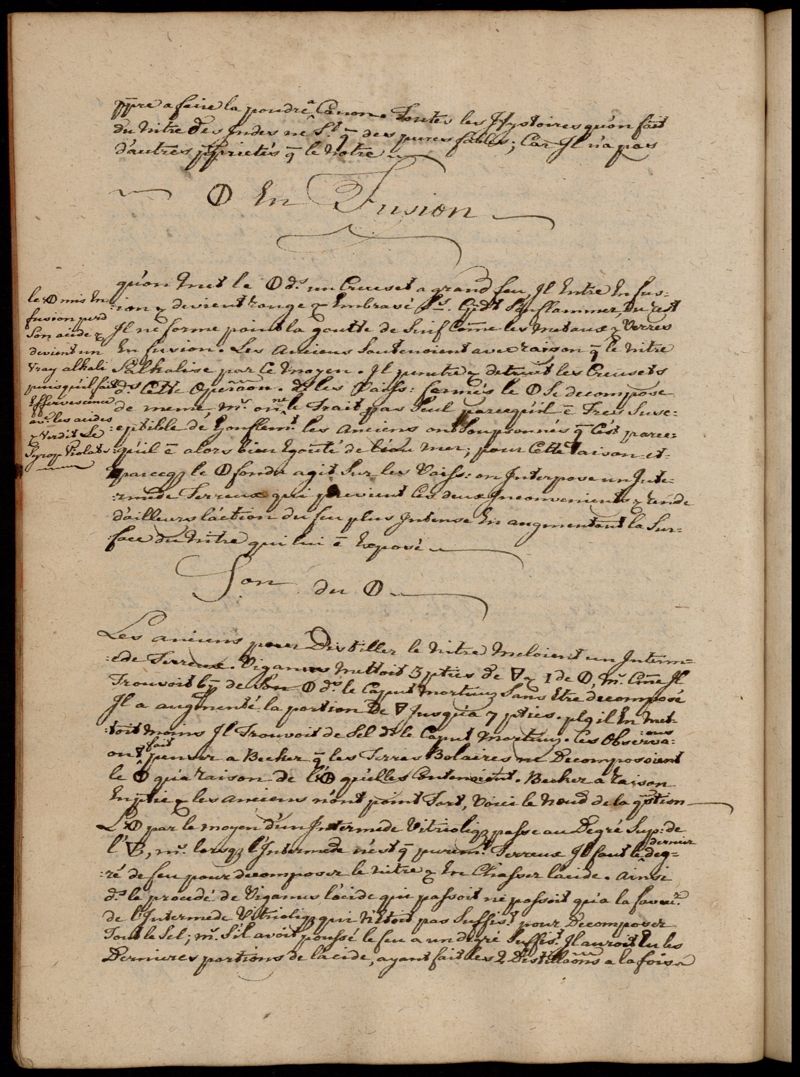 ppre a faire la poudre a Canon. Toutes les Hystoires qu'on fait
du Nitre des Indes ne St. q des pures fables; Car Il n'a pas
d'autres pprietés q le Notre
🜕 En Fusion
qu'on met le 🜕 ds. un Creuset a grand feu, Il Entre En fus-
:ion & devient rouge & Embrasé Ss. S'Enflammer, Du rest
Il ne forme point la goutte de Suif Come les metaux & Verres
En fusion. Les Anciens Soutenoient avec raison q le Nitre
S'alkalise par ce moyen. Il penetre & detruit les Creusets
ds. Cette Operaon. ds les Vaiss: fermés le 🜕 Se decompose
de meme, ms. on ne le Trait pas Seul parcequ'il ē Tres Susc-
:eptible de Gonflemt. les Anciens ont Soupsonnés q C'est parce-
qu'il ē alors bien Egouté de l'eau mer; pour Cette raison et
parceqz le 🜕 fondu agit Sur les Vaiss: on Interpose un Inte-
:rmede Terreux qui previent Ces deux Inconvenients & rende
d'ailleurs l'action du feu plus Intense En augmentant la Sur-
face du Nitre qui lui ē Exposé
le 🜕 mis En
fusion perd
Son acide &
devient un
Vray alkali
puisqu'il fait
Effervescence
av. les acides
& Verdit Le
Syrop Violats
Son du 🜕
Les anciens pour Distiller le Nitre meloient un Interm-
:ede Terreux. Viganus mettoit 3 pties de 🜃 & 1 de 🜕, ms. Come Il
Trouvoit de Son 🜕 ds. le Caput Mortuuz Sans Etre decomposé
Il a augmenté la portion De 🜃 Jusqu'a 7 pties. plq il En met-
:toit moins Il Trouvoit de Sel ds. le Caput Mortuuz. Ces Observa:ons
ont fait penser a Becher q les Terres Bolaires ne Decomposoient
le 🜕 qu'a raison de l' qu'elles Contenoient. Becher a raison
En ptie & les anciens n'ont point Tort, Voici le Noeud de la qstion
L' par le moyen d'un Intermede Vitrioliqz passe au Degré Sup. de
l' , ms. lorsqz l'Intermede n'est q puremt. Terreux Il faut le dernier deg-
:ré de feu pour decomposer le Nitre & En Chasser l'acide. Ainsi
ds. le procedé de Viganus l'acide qui passoit ne passoit qu'a la faveur.
de l'Intermede Vitrioliqz qui N'Etoit pas Suffist. pour Decomposer
Tout le Sel; ms. S'il avoit poussé le feu a un degré Suffist. Il auroit Eu les
Dernieres portions de l'acide, ayant fait les 2 Distillaons a la fois